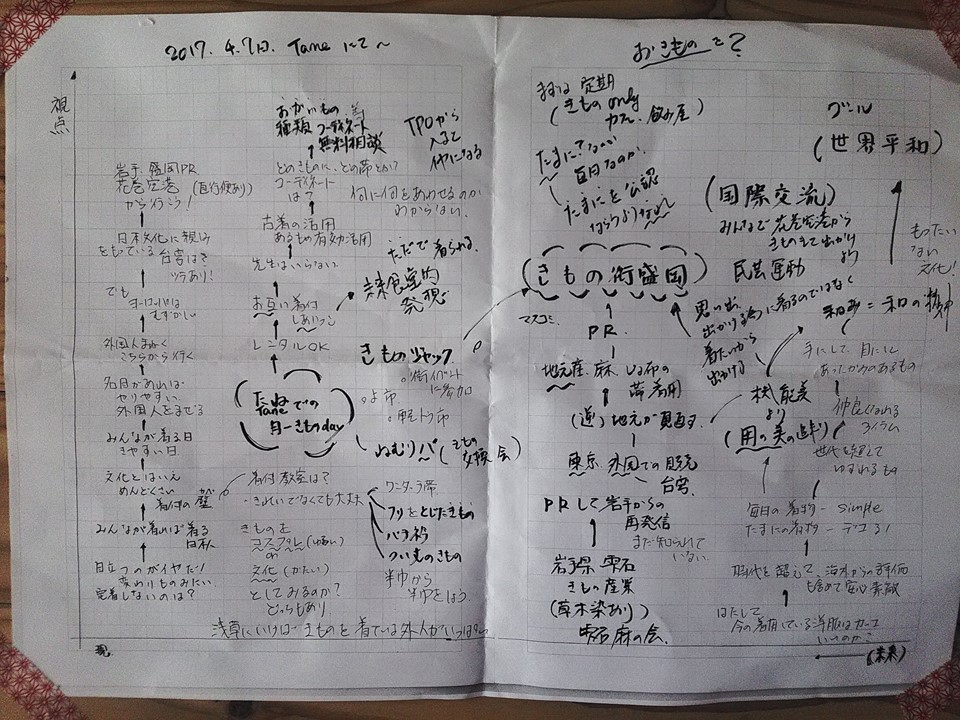 2017. 4. 7日. Tane にて～
視点
おかいもの 等
種類 コーディネート
無料相談
TPOから
入ると
どのきものに、どの帯とか?
コーディネート
は?
何に何をあわせるのか
わからない。
岩手、盛岡PR
花巻空港 (直行便あり)
から行こう!
古着の活用
あるもの有効活用
日本文化に親しみ
をもっている 台湾はさ
先生はいらない
ただで着られる。
発想
でも
ヨーロッパは
むずかしい
お互い着付
しあいっこ
レンタルOK
外国人まねく
こちらから行く
きものジャック
。街イベント
に参加
。よ市
。軽トラ市
名目があれば
やりやすい
外国人をまぜる
たね
Taneでの
月一きものday
みんなが着る日
きやすい日
(きもの
交換会)
文化とはいえ
めんどくさい
着付の壁
着付教室は?
・きれいでなくても大丈夫
みんなが着れば着る
日本人
きものを
コスプレ(ゆるい)
or
文化(かたい)
としてみるか?
どっちもあり
ついものきもの
半巾から
半巾をはう。
目立つのがイヤだ!
変わりものみたい
定着しないのは?
浅草にいけば きものを着ている外人がいっぱい
現
おきものって?
まずは 定期
(きもの only
カフェ、飲み屋)
たまに?なのか
毎日なのか。
たまにを公認
ゴール
(世界平和)
(国際交流)
みんなで花巻空港から
きものきて出かけ
より
民芸運動
もったい
ない
文化!
(きもの街盛岡)
マスコミ
PR
思い出
出かける為に着るのではなく
着たいから
出かける
和 = 和の精神
手にして、目にし
あったかみのあるもの
地元産 麻 しな布の
帯着用
(逆)地元が見直す
機能美
より
(用の美の追求)
仲良くなれる
アイテム
世代を超えて
ゆずれるもの
東京 外国での販売
台湾
PRして岩手からの
再発信
まだ知られて
いない
毎日の着物 ー Simple
たまにの着物 ー デコる!
時代を超えて、海外からの評価
も含めて安心素敵
岩手県 雫石
きもの産業
(草木染あり)
雫石麻の会。
はたして
今の着用している洋服はカッコ
いいのか?
(未来)